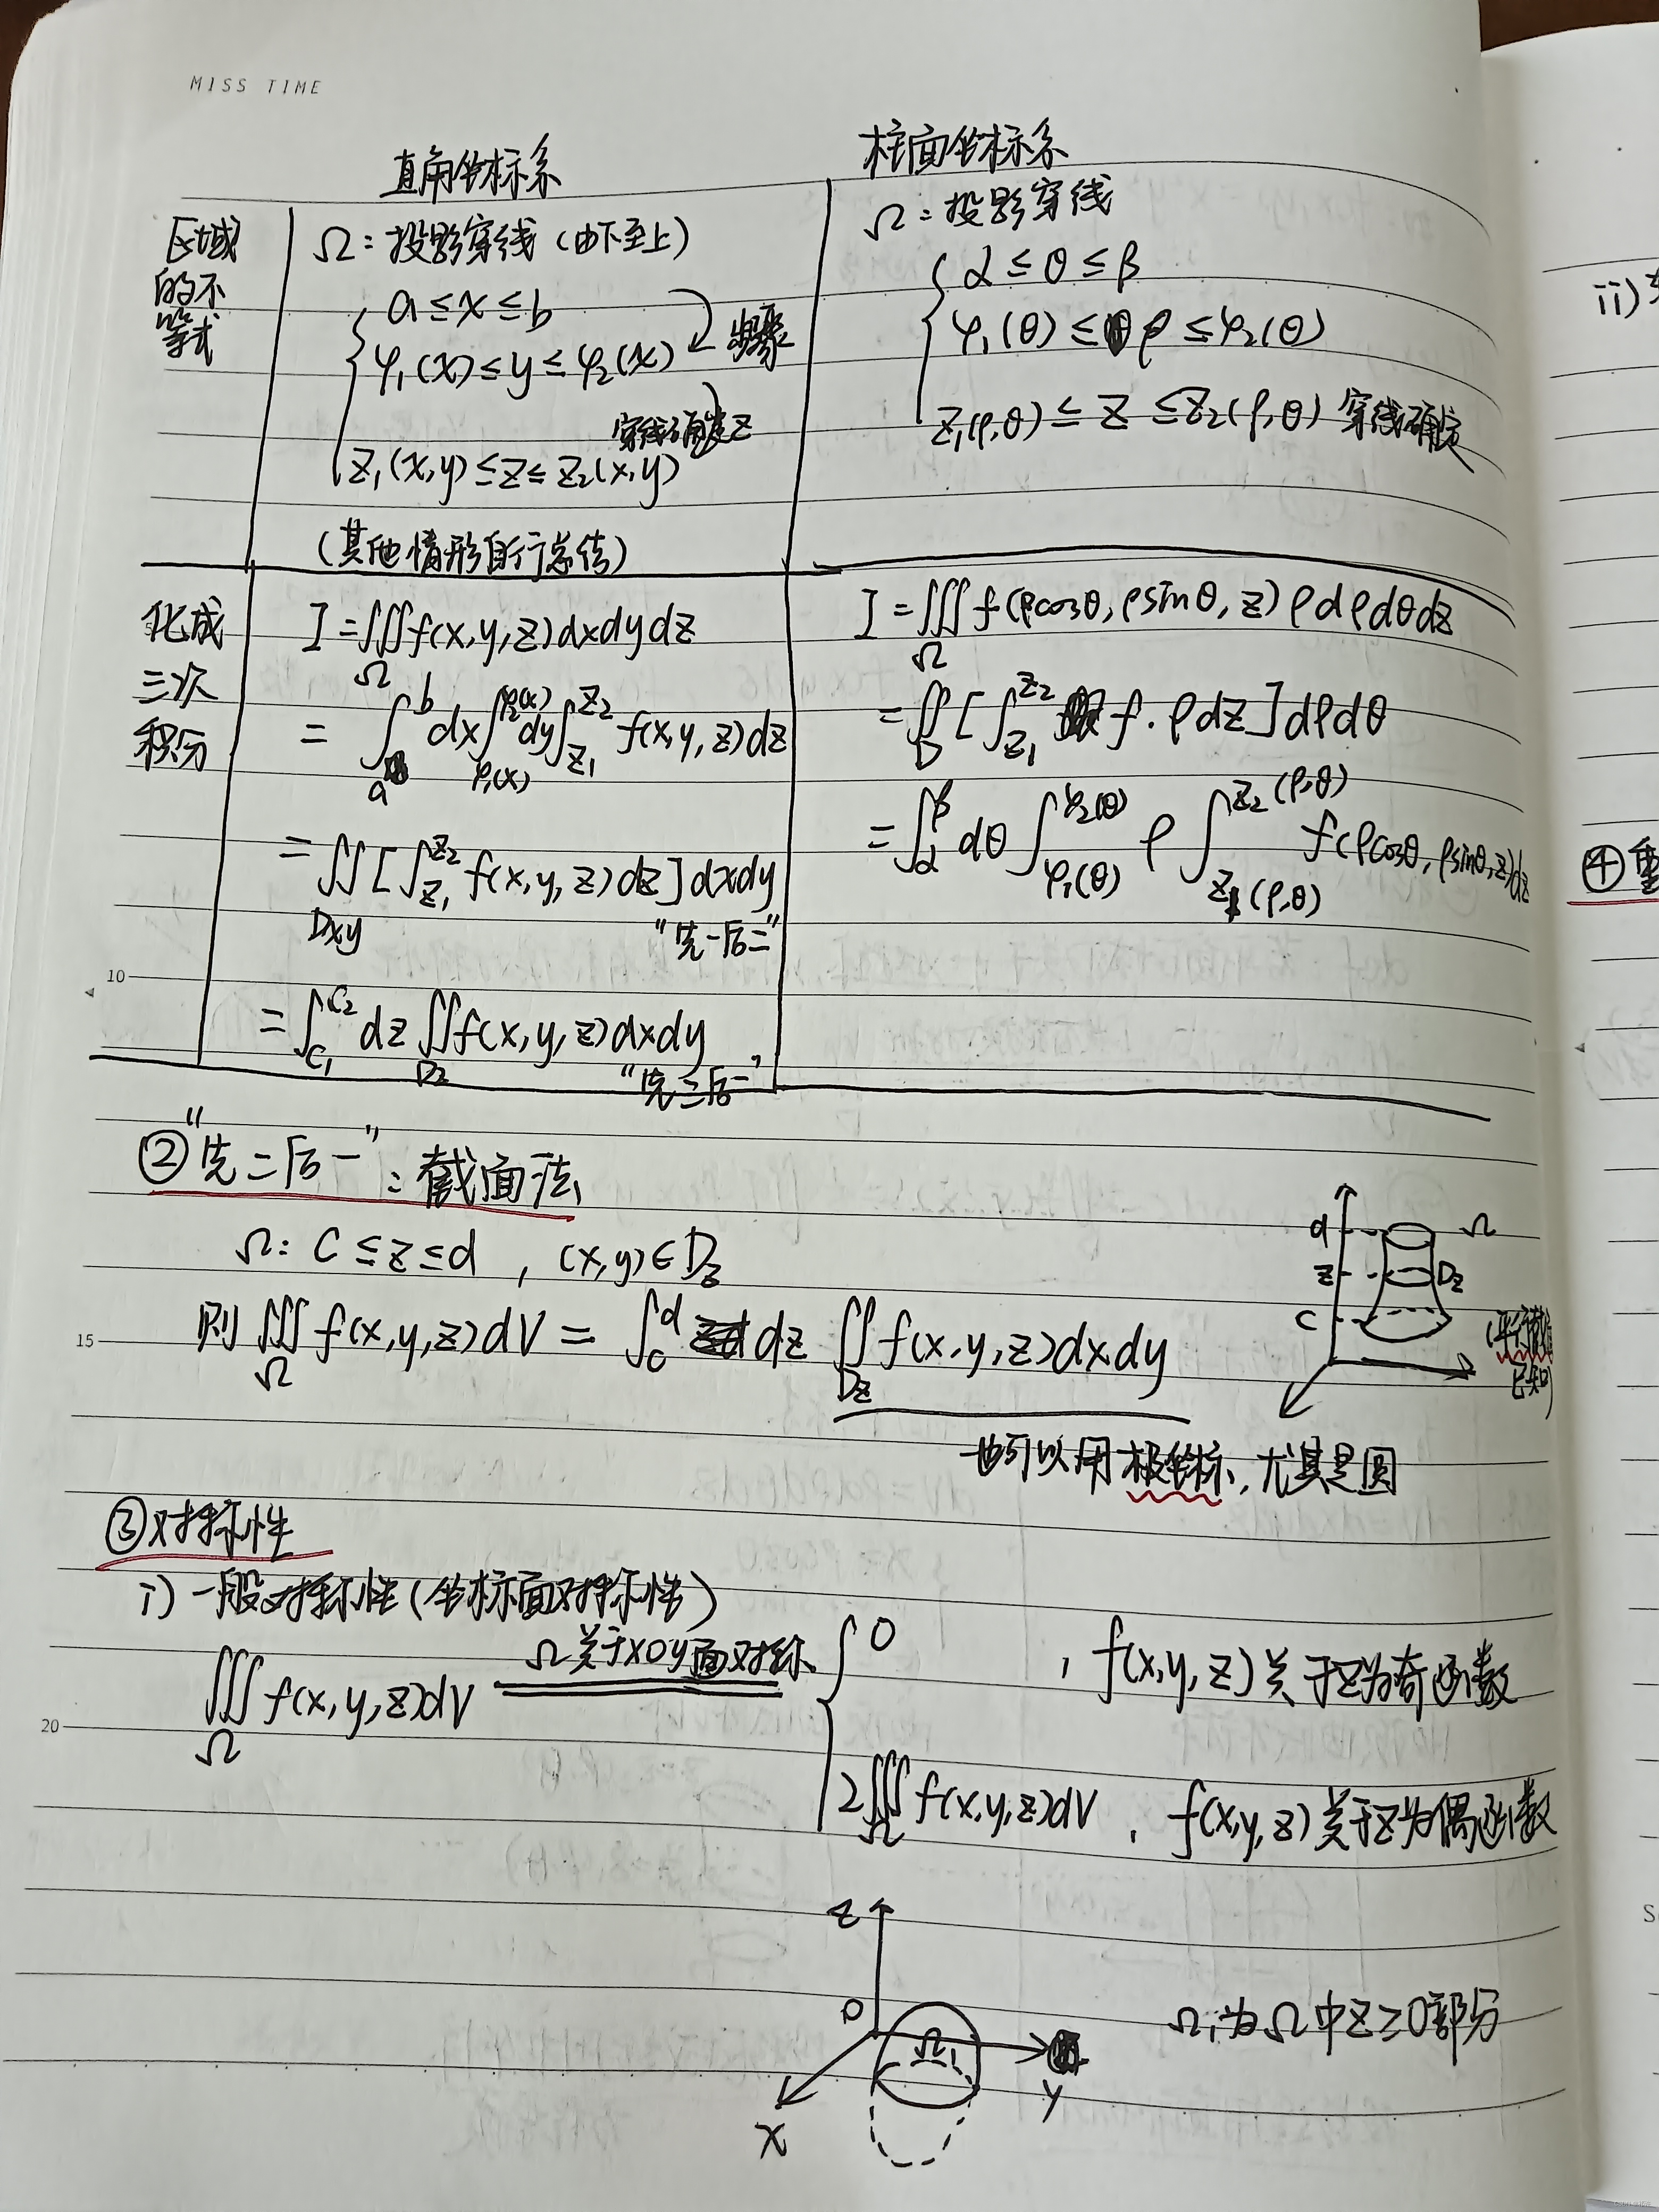 MISS TIME
直角坐标系
柱面坐标系
区域
的不
等式
Ω：投影穿线（由下至上）
a ≤ x ≤ b
φ₁(x) ≤ y ≤ φ₂(x)
步骤
穿线确定z
z₁(x,y) ≤ z ≤ z₂(x,y)
（其他情形自行总结）
Ω：投影穿线
α ≤ θ ≤ β
φ₁(θ) ≤ ρ ≤ φ₂(θ)
z₁(ρ,θ) ≤ z ≤ z₂(ρ,θ) 穿线确定
化成
三次
积分
I = ∭_Ω f(x,y,z)dxdydz
= ∫_a^b dx ∫_{φ₁(x)}^{φ₂(x)} dy ∫_{z₁}^{z₂} f(x,y,z)dz
= ∬_{Dxy} [∫_{z₁}^{z₂} f(x,y,z)dz]dxdy
“先一后二”
= ∫_{C₁}^{C₂} dz ∬_{Dz} f(x,y,z)dxdy
“先二后一”
I = ∭_Ω f(ρcosθ, ρsinθ, z) ρdρdθdz
= ∬_D [∫_{z₁}^{z₂} f·ρdz]dρdθ
= ∫_α^β dθ ∫_{φ₁(θ)}^{φ₂(θ)} ρ ∫_{z₁(ρ,θ)}^{z₂(ρ,θ)} f(ρcosθ, ρsinθ, z)dz
10
②“先二后一”：截面法
Ω: C ≤ z ≤ d , (x,y)∈Dz
则 ∭_Ω f(x,y,z)dV = ∫_c^d dz ∬_{Dz} f(x,y,z)dxdy
15
d
Ω
z
Dz
C
已知)
也可以用极坐标，尤其是圆
③对称性
i) 一般对称性（坐标面对称性）
∭_Ω f(x,y,z)dV
Ω关于xOy面对称
0 , f(x,y,z)关于z为奇函数
2∭_Ω f(x,y,z)dV , f(x,y,z)关于z为偶函数
20
z
O
Ω₁
y
x
Ω₁为Ω中z≥0部分
ii)
④重